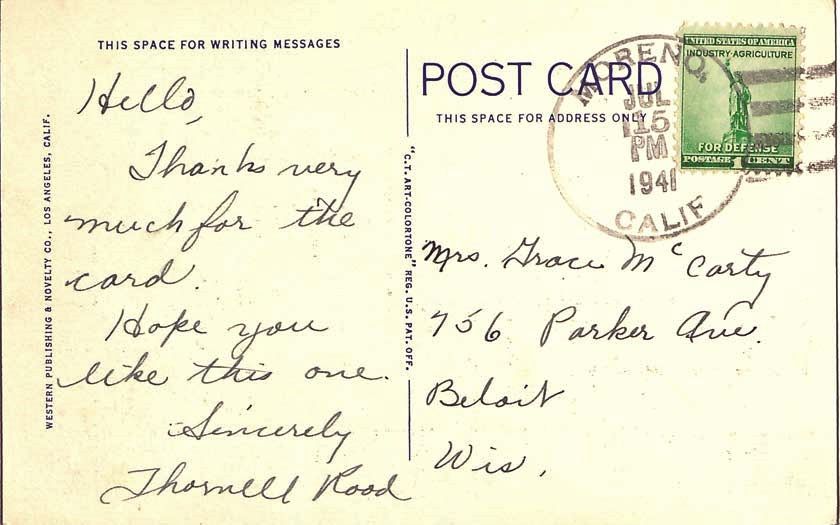 THIS SPACE FOR WRITING MESSAGES
Hello,
Thanks very
much for the
card.
Hope you
like this one.
Sincerely
Thornell Rood
WESTERN PUBLISHING & NOVELTY CO., LOS ANGELES, CALIF.
"C.T. ART-COLORTONE" REG. U.S. PAT. OFF.
POST CARD
THIS SPACE FOR ADDRESS ONLY
MORENO,
JUL
15
PM
1941
CALIF
UNITED STATES OF AMERICA
INDUSTRY·AGRICULTURE
FOR DEFENSE
POSTAGE 1 CENT
Mrs. Grace McCarty
756 Parker Ave.
Beloit
Wis.